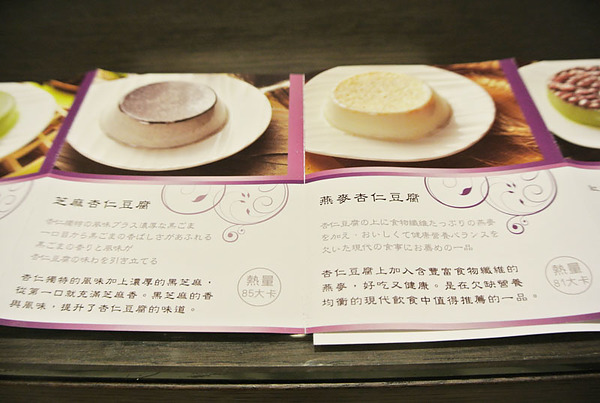 芝麻杏仁豆腐
杏仁獨特の風味プラス濃厚な黒ごま
一口目から黒ごまの香ばしさがあふれる
黒ごまの香りと風味が
杏仁豆腐の味わを引き立てる
杏仁獨特的風味加上濃厚的黑芝麻,
從第一口就充滿芝麻香。黑芝麻的香
與風味,提升了杏仁豆腐的味道。
熱量
85大卡
燕麥杏仁豆腐
杏仁豆腐の上に食物繊維たっぷりの燕麥
を加え,おいしくて健康營養バランスを
欠いた現代の食事にお薦めの一品
杏仁豆腐上加入含豐富食物纖維的
燕麥,好吃又健康。是在欠缺營養
均衡的現代飲食中值得推薦的一品。
熱量
81大卡